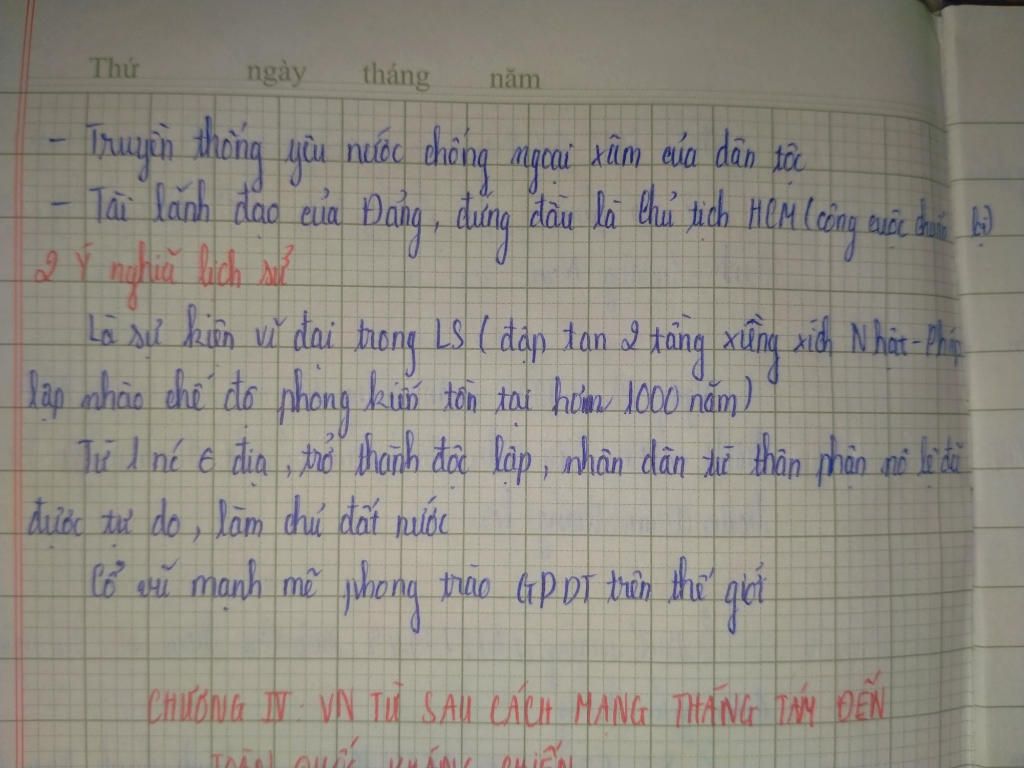 Thứ ngày tháng năm
- Truyền thống yêu nước chống ngoại xâm của dân tộc
- Tài lãnh đạo của Đảng, đứng đầu là Chủ tịch HCM (công cuộc chuẩn bị)
2 Ý nghiã lịch sử
Là sự kiện vĩ đại trong LS (đập tan 2 tầng xiềng xích Nhật-Pháp
lập nhào chế độ phong kiến tồn tại hơn 1000 năm)
Từ 1 nc € địa, trở thành độc lập, nhân dân từ thân phận nô lệ đã
được tự do, làm chủ đất nước
Cổ vũ mạnh mẽ phong trào GPDT trên thế giới
CHƯƠNG IV. VN TỪ SAU CÁCH MẠNG THÁNG TÁM ĐẾN
TOÀN QUỐC KHÁNG CHIẾN